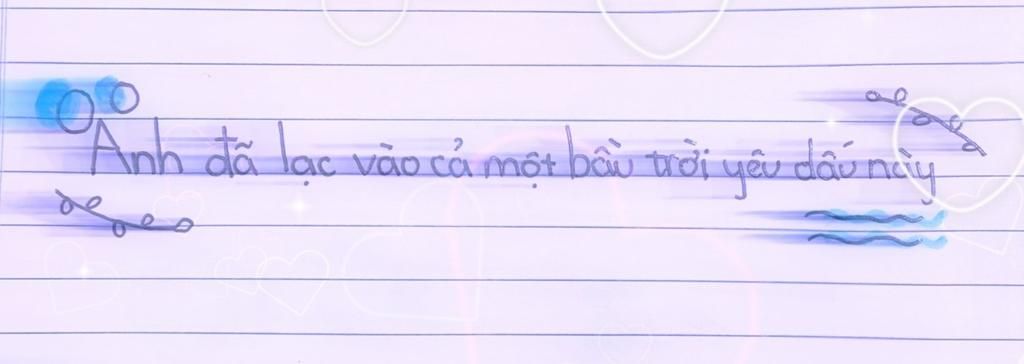 Anh đã lạc vào cả một bầu trời yêu dấu này